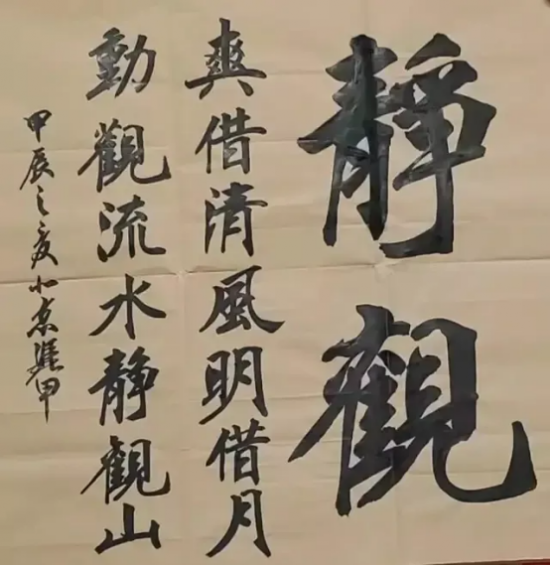 靜觀
爽借清風明借月
動觀流水靜觀山
甲辰之夏